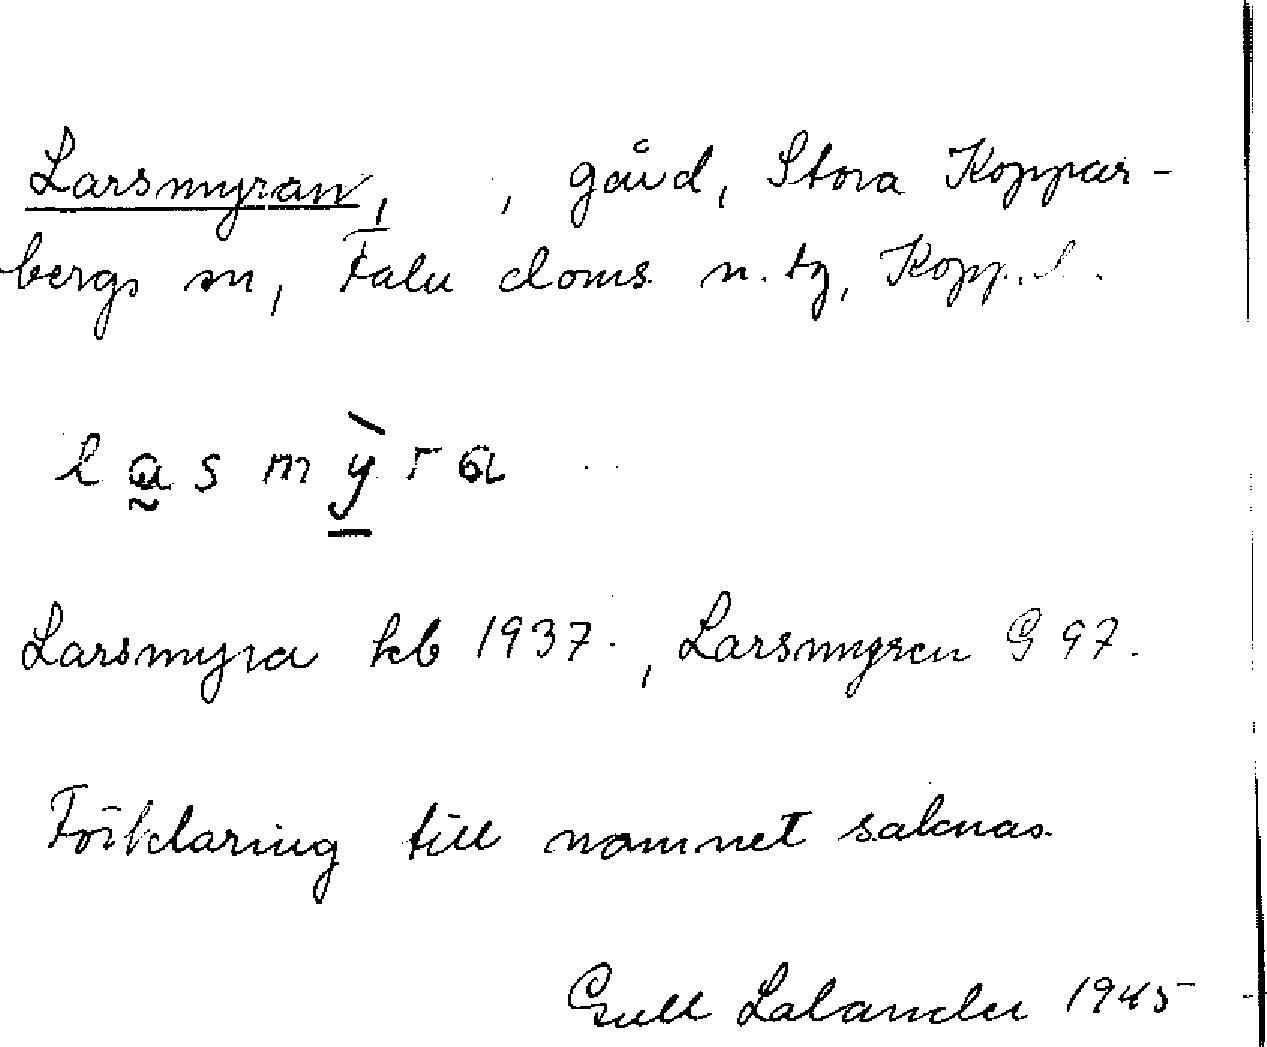 Larsmyran, , gård, Stora Koppar-
bergs sn, Falu doms. n. tg, Kopp. l.
l a s m y r a
Larsmyra kb 1937., Larsmyren G 97.
Förklaring till namnet saknas.
Gull Lalander 1945